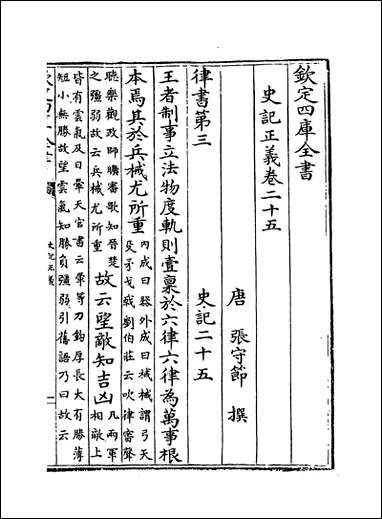 欽定四庫全書
史記正義卷二十五
唐 張守節 撰
律書第三 史記二十五
王者制事立法物度軌則壹稟於六律六律為萬事根
本焉其於兵械尤所重
內成曰器外成曰械械謂弓矢
殳矛戈戟劉伯莊云吹律審聲
聽樂觀政師曠審歌知晉楚
之強弱故云兵械尤所重
故云望敵知吉凶
凡兩軍
相敵上
皆有雲氣及日暈天官書云暈等力鈞厚長大有勝薄
短小無勝故望雲氣知勝負強弱引舊語乃曰故云
史記正義